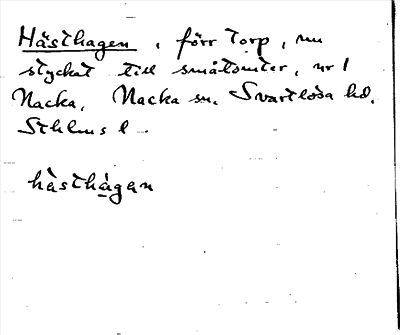 Hästhagen, förr torp, nu
styckat till småtomter, nr 1
Nacka, Nacka sn. Svartlösa hd.
Sthlms l.
hàsthàgan